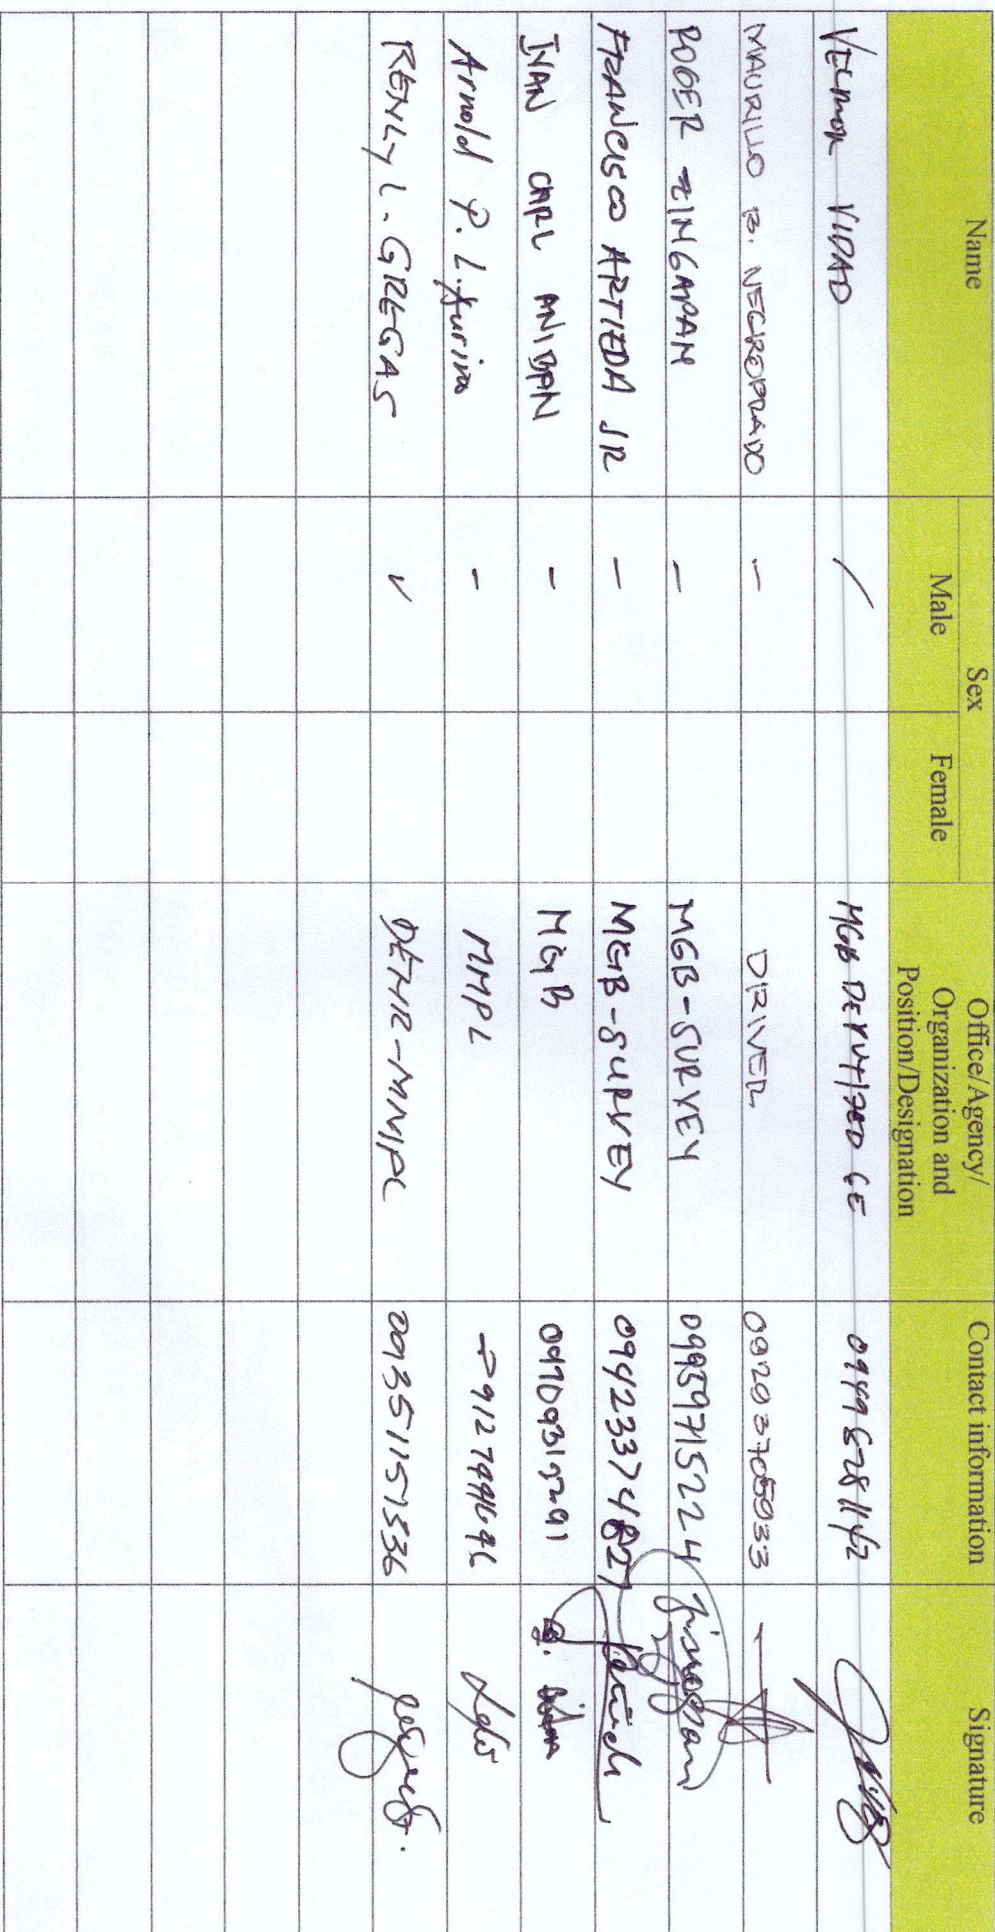 Name
Sex
Male
Female
Office/Agency/
Organization and
Position/Designation
Contact information
Signature
VELMOR VIDAD / MGB DEPUTIZED GE
MAURILLO B. NEGROPRADO - DRIVER
ROGER ZINGAPAN - MGB-SURVEY 09959715224
FRANCISCO ARTIEDA JR - MGB-SURVEY 09423374827
IVAN CARL ANIBAN - MGB
Arnold P. - MMPL
RENLY L. GREGAS ✓ DENR-MMPL 09351151536